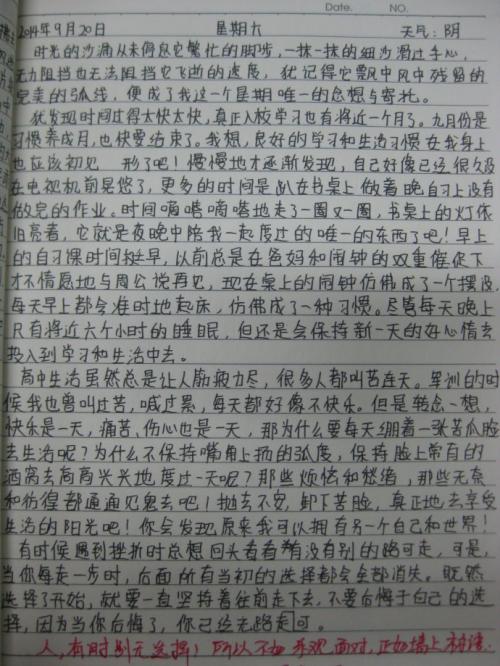 Date. NO.
2014年9月20日 星期六 天气:阴
时光的沙漏从未停息它繁忙的脚步,一抹一抹的细沙滑过手心,
无力阻挡也无法阻挡它飞逝的速度,犹记得它飘中风中残留的
完美的弧线,便成了我这一个星期唯一的念想与寄托。
犹发现时间过得太快太快,真正入校学习也有将近一个月了。九月份是
习惯养成月,也快要结束了。我想,良好的学习和生活习惯在我身上
也应该初见 形了吧!慢慢地才逐渐发现,自己好像已经很久没
在电视机前晃悠了,更多的时间是趴在书桌上做着晚自习上没有
做完的作业。时间嘀嗒嘀嗒地走了一圈又一圈,书桌上的灯依
旧亮着,它就是夜晚中陪我一起度过的唯一的东西了吧!早上
的自习课时间挺早,以前总是在爸妈和闹钟的双重催促下
才不情愿地与周公说再见,现在桌上的闹钟仿佛成了一个摆设,
每天早上都会准时地起床,仿佛成了一种习惯。尽管每天晚上
只有将近六个小时的睡眠,但还是会保持新一天的好心情去
投入到学习和生活中去。
高中生活虽然总是让人筋疲力尽,很多人都叫苦连天。军训的时
候我也曾叫过苦,喊过累,每天都好像不快乐。但是转念一想,
快乐是一天,痛苦、伤心也是一天,那为什么要每天绷着一张苦瓜脸
去生活呢?为什么不保持嘴角上扬的弧度,保持脸上带有的
洒窝去高高兴兴地度过一天呢?那些烦恼和愁绪,那些无奈
和彷徨都通通见鬼去吧!抛去不安,卸下苦脸,真正地去享受
生活的阳光吧!你会发现,原来我可以拥有另一个自己和世界!
有时候遇到挫折时总想回头看看有没有别的路可走,可是,
当你每走一步时,后面所有当初的选择都会全部消失。既然
选择了开始,就要一直坚持着往前走下去,不要后悔于自己的选
择,因为当你后悔了,你已经无路可走。
人,有时别无选择!所以不如乐观面对,正如墙上